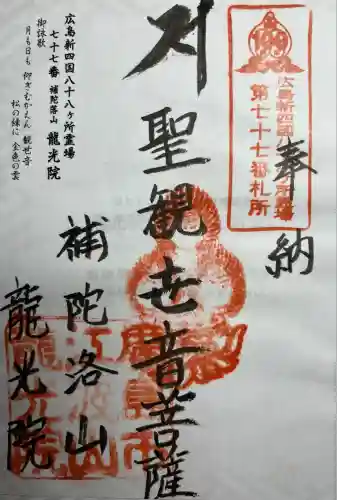 広島新四国八十八ヶ所霊場
第七十七番札所
奉納
聖観世音菩薩
補陀洛山
龍光院
広島新四国八十八ヶ所霊場
七十七番 補陀落山 龍光院
御詠歌
月も日も 仰ぎむかえん 観世音
松の緑に 金色の雲